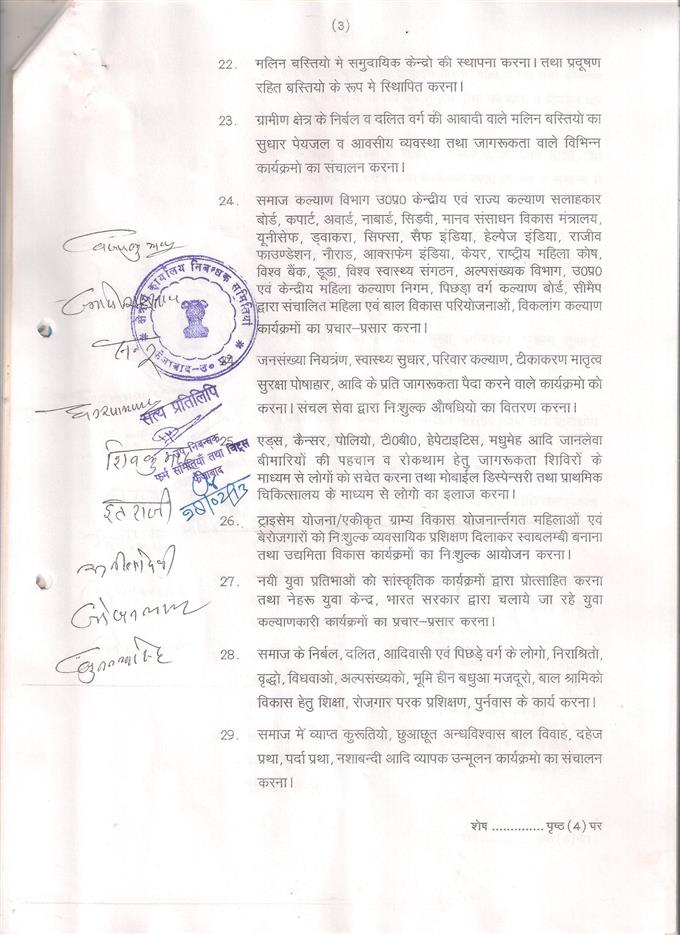 (3)
22. मलिन बस्तियो मे समुवायिक केन्द्रो की स्थापना करना। तथा प्रदूषण
रहित बस्तियो के रूप मे स्थिापित करना।
23. ग्रामीण क्षेत्र के निर्बल व दलित वर्ग की आबादी वाले मलिन बस्तियो का
सुधार पेयजल व आवसीय व्यवस्था तथा जागरूकता वाले विभिन्न
कार्यक्रमो का संचालन करना।
24. समाज कल्याण विभाग उ0प्र0 केन्द्रीय एवं राज्य कल्याण सलाहकार
बोर्ड, कपार्ट, अवार्ड, नाबार्ड, सिडवी, मानव संसाधन विकास मंत्रालय,
यूनीसेफ, ड्वाकरा, सिफ्सा, सैफ इंडिया, हेल्पेज इंडिया, राजीव
फाउण्डेशन, नौराड, आक्सफेम इंडिया, केयर, राष्ट्रीय महिला कोष,
विश्व बैंक, डूडा, विश्व स्वास्थ्य संगठन, अल्पसंख्यक विभाग, उ0प्र0
एवं केन्द्रीय महिला कल्याण निगम, पिछड़ा वर्ग कल्याण बोर्ड, सीमैप
द्वारा संचालित महिला एवं बाल विकास परियोजनाओं, विकलांग कल्याण
कार्यक्रमों का प्रचार–प्रसार करना।
कार्यालय निबन्धक समितियाँ
जनसंख्या नियत्रंण, स्वास्थ्य सुधार, परिवार कल्याण, टीकाकरण मातृत्व
सुरक्षा पोषाहार, आदि के प्रति जागरूकता पैदा करने वाले कार्यक्रमो को
करना। संचल सेवा द्वारा निःशुल्क औषधियो का वितरण करना।
सत्य प्रतिलिपि
उप निबन्धक
फर्म समितियाँ तथा चिट्स
फैजाबाद
25. एड्स, कैन्सर, पोलियो, टी0बी0, हेपेटाइटिस, मधुमेह आदि जानलेवा
बीमारियों की पहचान व रोकथाम हेतु जागरूकता शिविरों के
माध्यम से लोगों को सचेत करना तथा मोबाईल डिस्पेन्सरी तथा प्राथमिक
चिकित्सालय के माध्यम से लोगो का इलाज करना।
26. ट्राइसेम योजना/एकीकृत ग्राम्य विकास योजनार्न्तगत महिलाओं एवं
बेरोजगारों को निःशुल्क व्यवसायिक प्रशिक्षण दिलाकर स्वाबलम्बी बनाना
तथा उद्यमिता विकास कार्यक्रमों का निःशुल्क आयोजन करना।
27. नयी युवा प्रतिभाओं को सांस्कृतिक कार्यक्रमों द्वारा प्रोत्साहित करना
तथा नेहरू युवा केन्द्र, भारत सरकार द्वारा चलाये जा रहे युवा
कल्याणकारी कार्यक्रमों का प्रचार–प्रसार करना।
28. समाज के निर्बल, दलित, आदिवासी एवं पिछड़े वर्ग के लोगो, निराश्रितो,
वृद्धो, विधवाओ, अल्पसंख्यको, भूमि हीन बधुआ मजदूरो, बाल श्रामिको
विकास हेतु शिक्षा, रोजगार परक प्रशिक्षण, पुर्नवास के कार्य करना।
29. समाज में व्याप्त कुरूतियो, छुआछूत अन्धविश्वास बाल विवाह, दहेज
प्रथा, पर्दा प्रथा, नशाबन्दी आदि व्यापक उन्मूलन कार्यक्रमो का संचालन
करना।
शेष .............. पृष्ठ (4) पर